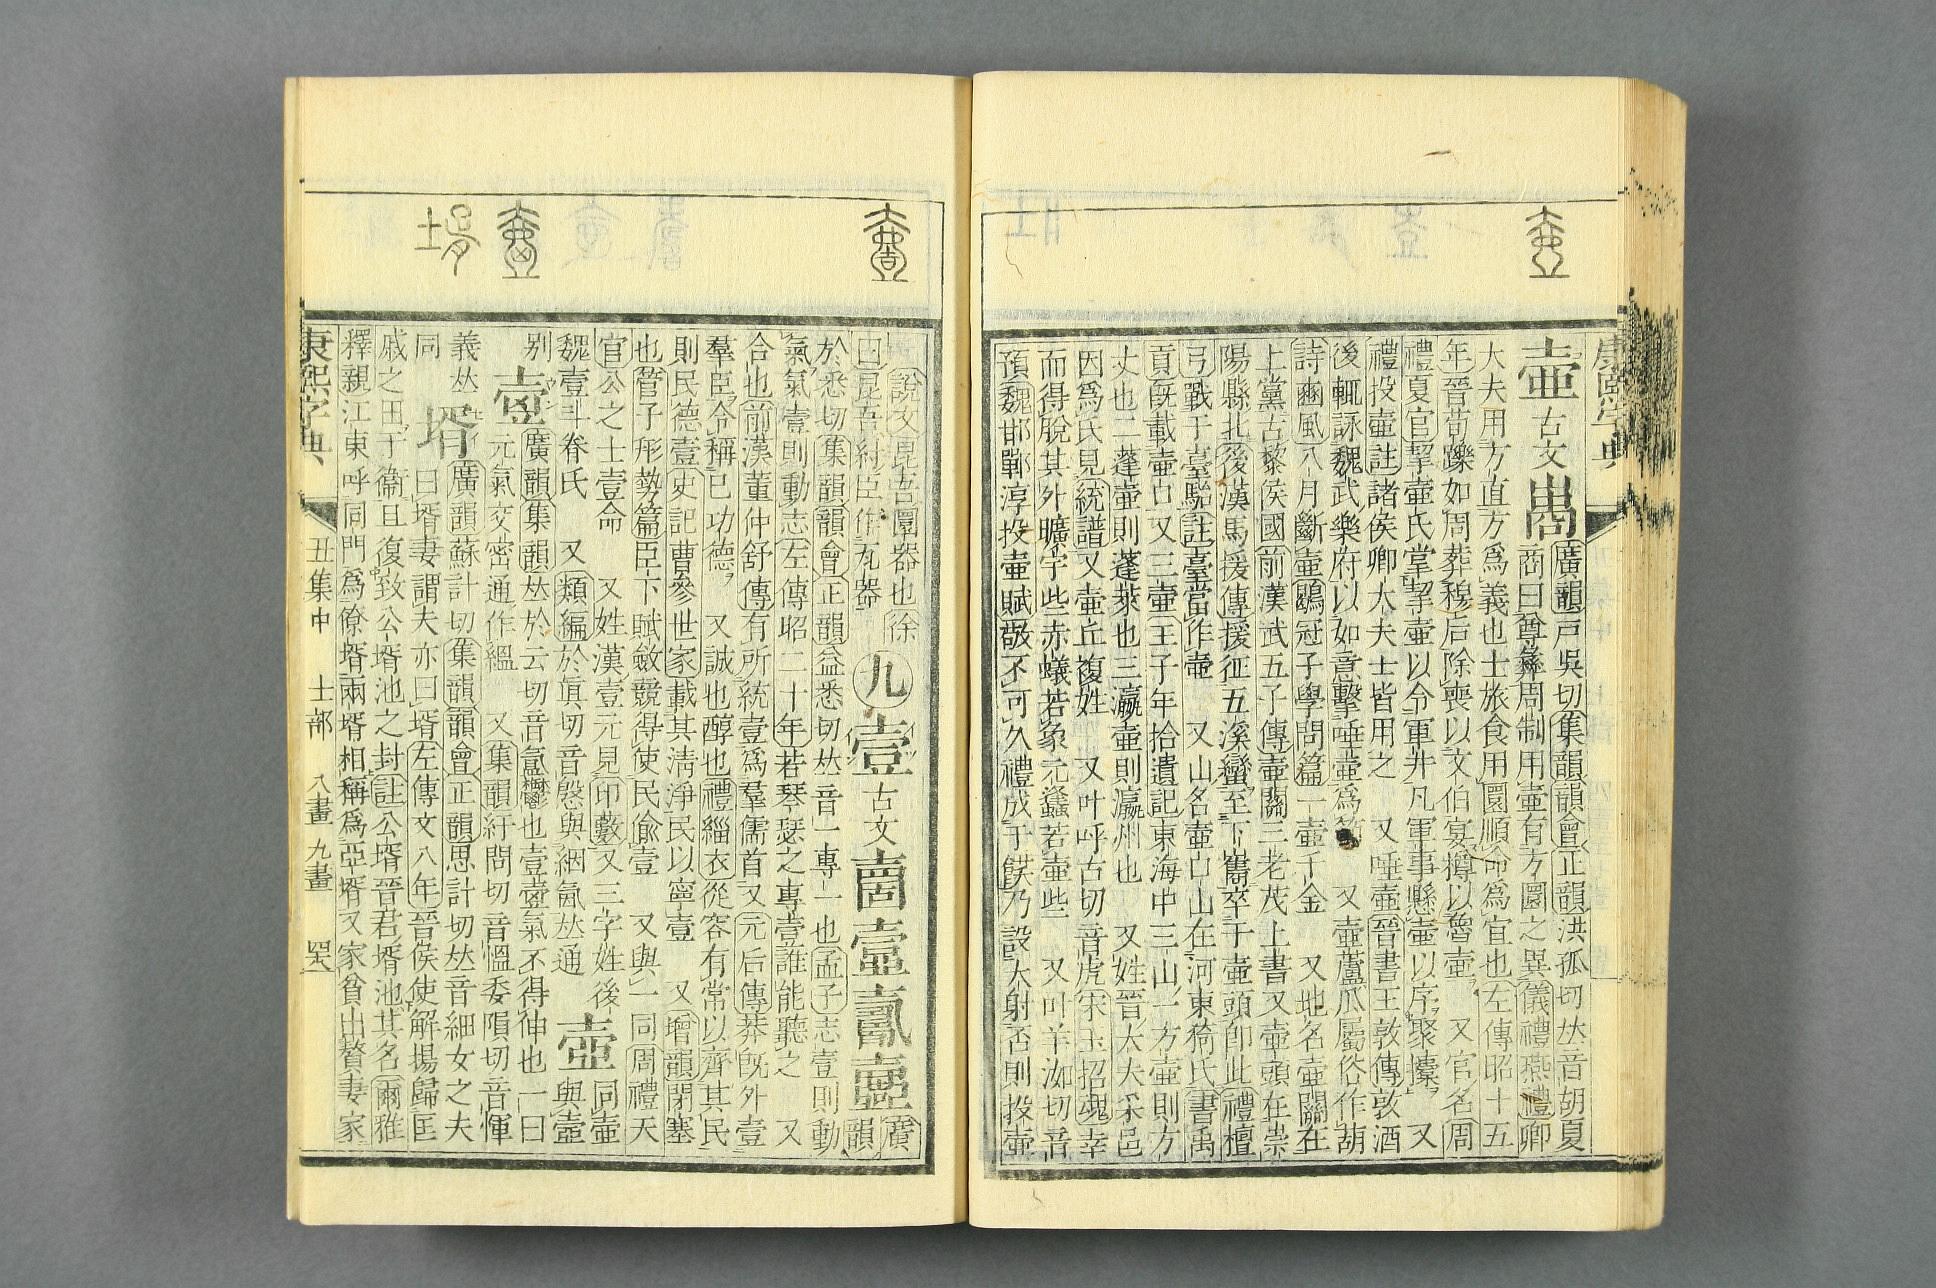 康熙字典
壺 古文 𡔲 廣韻戸吳切集韻韻會正韻洪孤切𠀤音胡
商曰尊彝周制用壺有方圜之異儀禮燕禮卿
大夫用方直方爲義也士旅食用圜順命爲宜也左傳昭十五
年晉荀躒如周葬穆后除喪以文伯宴樽以魯壺 又官名周
禮夏官挈壺氏掌挈壺以令軍井凡軍事懸壺以序聚𣝔 又
禮投壺註諸侯卿大夫士皆用之 又唾壺晉書王敦傳敦酒
後輒詠魏武樂府以如意擊唾壺爲節 又壺蘆瓜屬俗作胡
詩豳風八月斷壺鶡冠子學問篇一壺千金 又地名壺關在
上黨古黎侯國前漢武五子傳壺關三老茂上書又壺頭在崇
陽縣北後漢馬援傳援征五溪蠻至下雋卒于壺頭卽此禮檀
弓戰于臺駘註臺當作壺 又山名壺口山在河東猗氏書禹
貢旣載壺口又三壺王子年拾遺記東海中三山一方壺則方
丈也二蓬壺則蓬萊也三瀛壺則瀛州也 又姓晉大夫采邑
因爲氏見統譜又壺丘複姓 又叶呼古切音虎宋玉招魂幸
而得脫其外曠宇些赤蟻若象元蠭若壺些 又叶羊洳切音
預魏邯鄲淳投壺賦敬不可久禮成于飫乃設大射否則投壺
說文昆吾圜器也徐
曰昆吾紂臣作瓦器 九 壹 古文 廣韻
於悉切集韻韻會正韻益悉切𠀤音一專一也孟子志壹則動
氣氣壹則動志左傳昭二十年若琴瑟之專壹誰能聽之 又
合也前漢董仲舒傳有所統壹爲羣儒首又元后傳莽旣外壹
羣臣令稱已功德 又誠也醇也禮緇衣從容有常以齊其民
則民德壹史記曹參世家載其淸淨民以寧壹 又增韻閉塞
也管子形勢篇臣下賦斂競得使民偷壹 又與一同周禮天
官公之士壹命 又姓漢壹元見印藪又三字姓後
魏壹斗眷氏 又類編於眞切音慇與絪氤𠀤通 壺 同壺 與壼
別 壺 廣韻集韻𠀤於云切音氳鬱也壹壺氣不得伸也一曰
元氣交密通作縕 又集韻紆問切音慍委隕切音惲
義𠀤
同 壻 廣韻蘇計切集韻韻會正韻思計切𠀤音細女之夫
曰壻妻謂夫亦曰壻左傳文八年晉侯使解揚歸匡
戚之田于衞且復致公壻池之封註公壻晉君壻池其名爾雅
釋親江東呼同門爲僚壻兩壻相稱爲亞壻又家貧出贅妻家
康熙字典 丑集中 士部 八畫 九畫